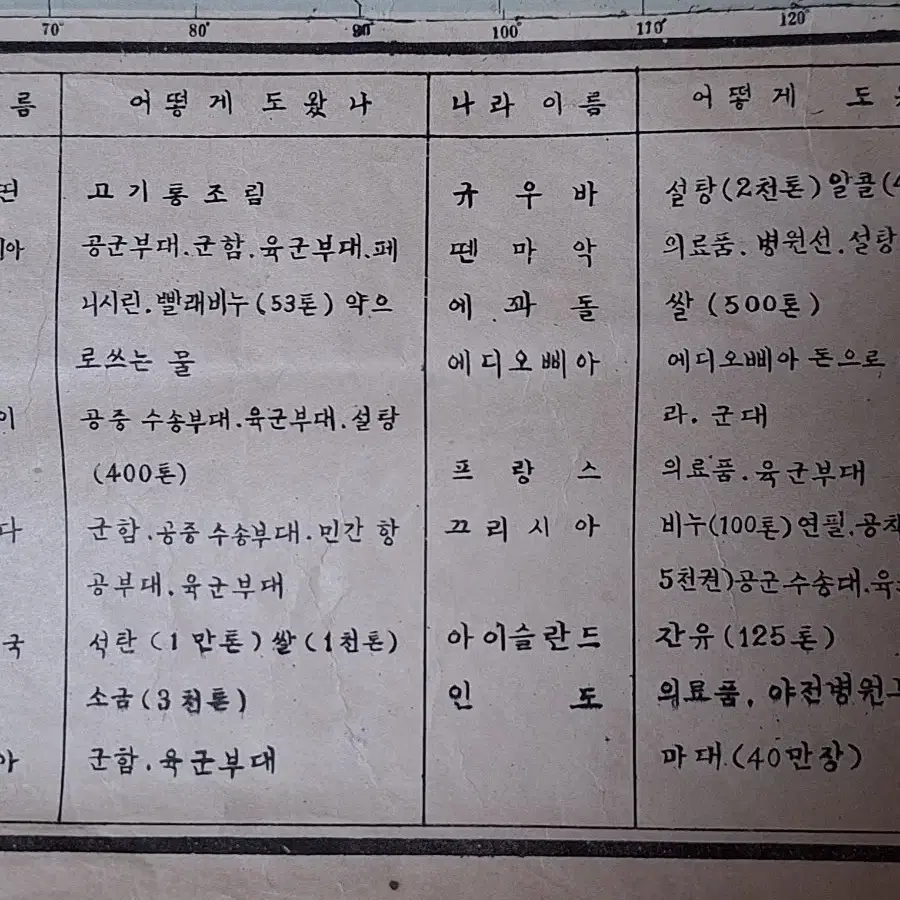 70° 80° 90° 100° 110° 120°
름 어떻게 도왔나 나라이름 어떻게 도
고기통조림 규우바 설탕(2천톤)알콜(
아 공군부대.군함.육군부대.페 뗀마악 의료품.병원선.설탕
니시린.빨래비누(53톤) 약으 에꽈돌 쌀(500톤)
로쓰는 물 에디오삐아 에디오삐아 돈으로
이 공중 수송부대.육군부대.설탕 라.군대
(400톤) 프랑스 의료품.육군부대
다 군함.공중 수송부대.민간 항 끄리시아 비누(100톤)연필.공책
공부대.육군부대 5천권)공군수송대.육
국 석탄(1만톤)쌀(1천톤) 아이슬란드 잔유(125톤)
소금(3천톤) 인도 의료품.야전병원
아 군함.육군부대 마대.(40만장)